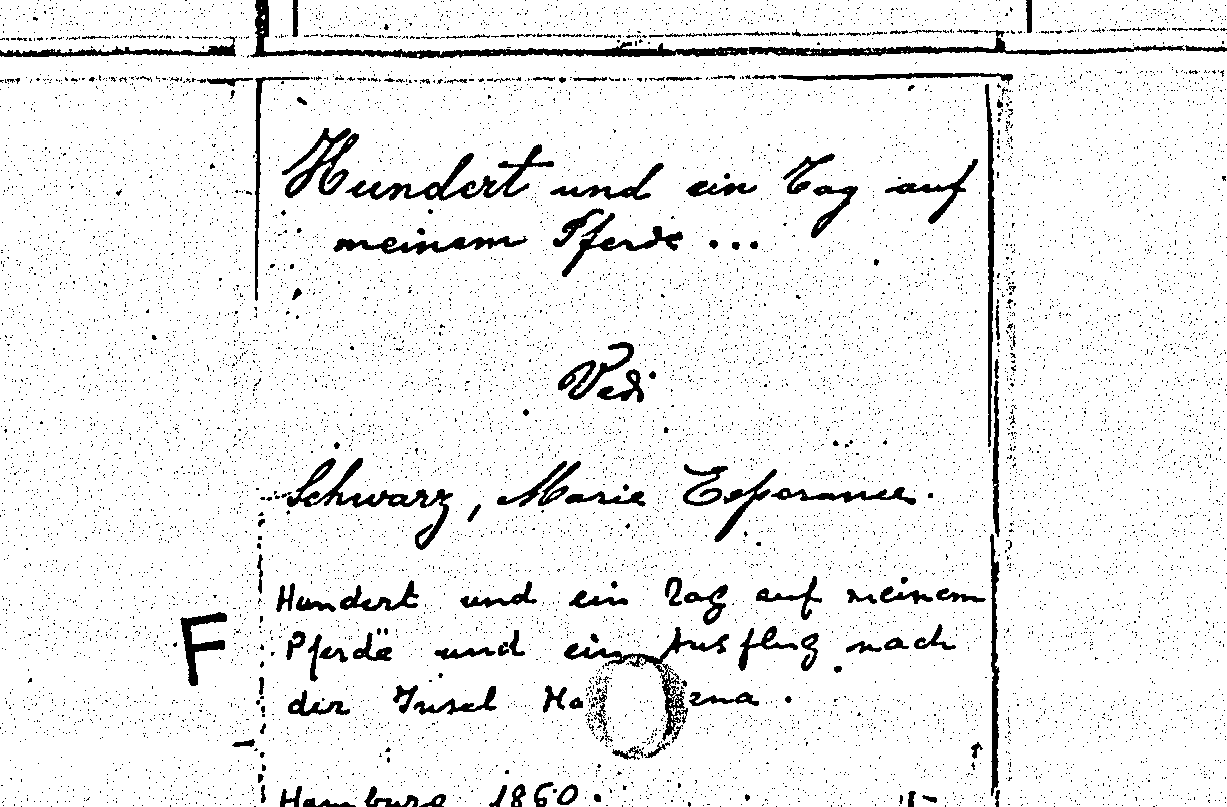 Hundert und ein Tag auf
meinem Pferde ...
Vedi
Schwarz, Marie Esperance.
Hundert und ein Tag auf meinem
F Pferdë und ein Ausflug nach
der Insel
Hamburg 1860.